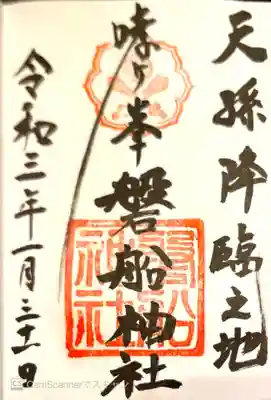 天孫降臨之地
哮ヶ峯
磐船神社
磐船神社
令和三年一月三十一日
CS CamScannerでスキャン